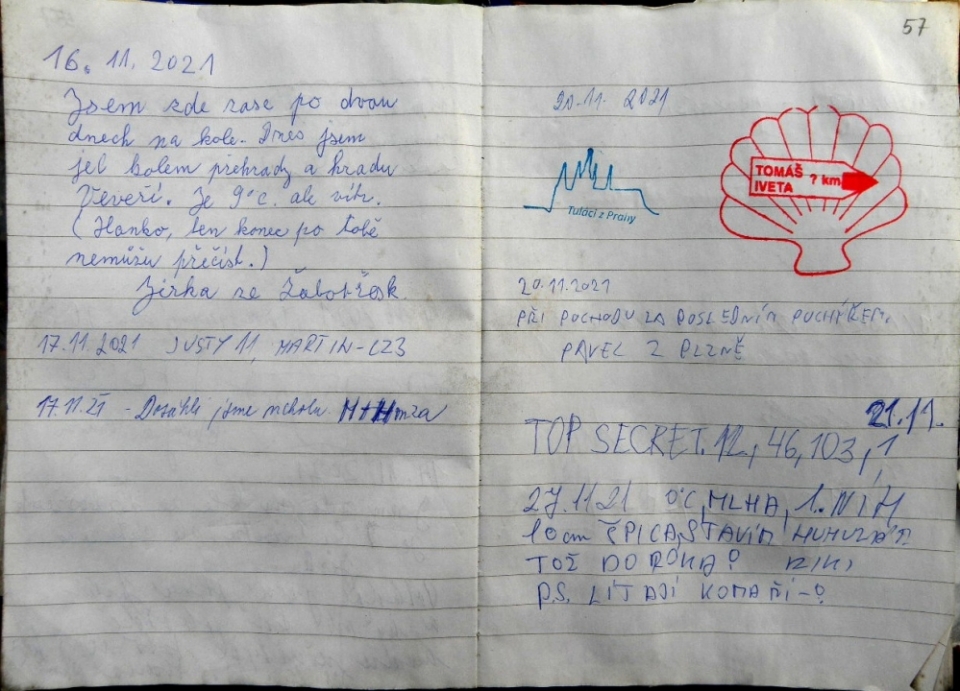 16. 11. 2021
Jsem zde zase po dvou
dnech na kole. Dnes jsem
jel kolem přehrady a hradu
Veveří. Je 9°c. ale vítr.
(Hanko, ten konec po tobě
nemůžu přečíst.)
Jirka ze Žabovřesk
17.11 2021 JUSTY 11, MARTIN-CZ3
17.11.21 - Dosáhli jsme vrcholu
57
20.11. 2021
Tuláci z Prahy
TOMÁŠ ? km
IVETA
20.11.2021
PŘI POCHODU ZA POSLEDNÍM PUCHÝŘEM.
PAVEL Z PLZNĚ
21.11.
TOP SECRET. 12, 46, 103, 1
27.11 21 0°C, MLHA, 1. SNÍH
10cm ŠPICA, STAVÍM
TOŽ DO ROKA!
P.S. LÍTAJÍ KOMAŘI-?